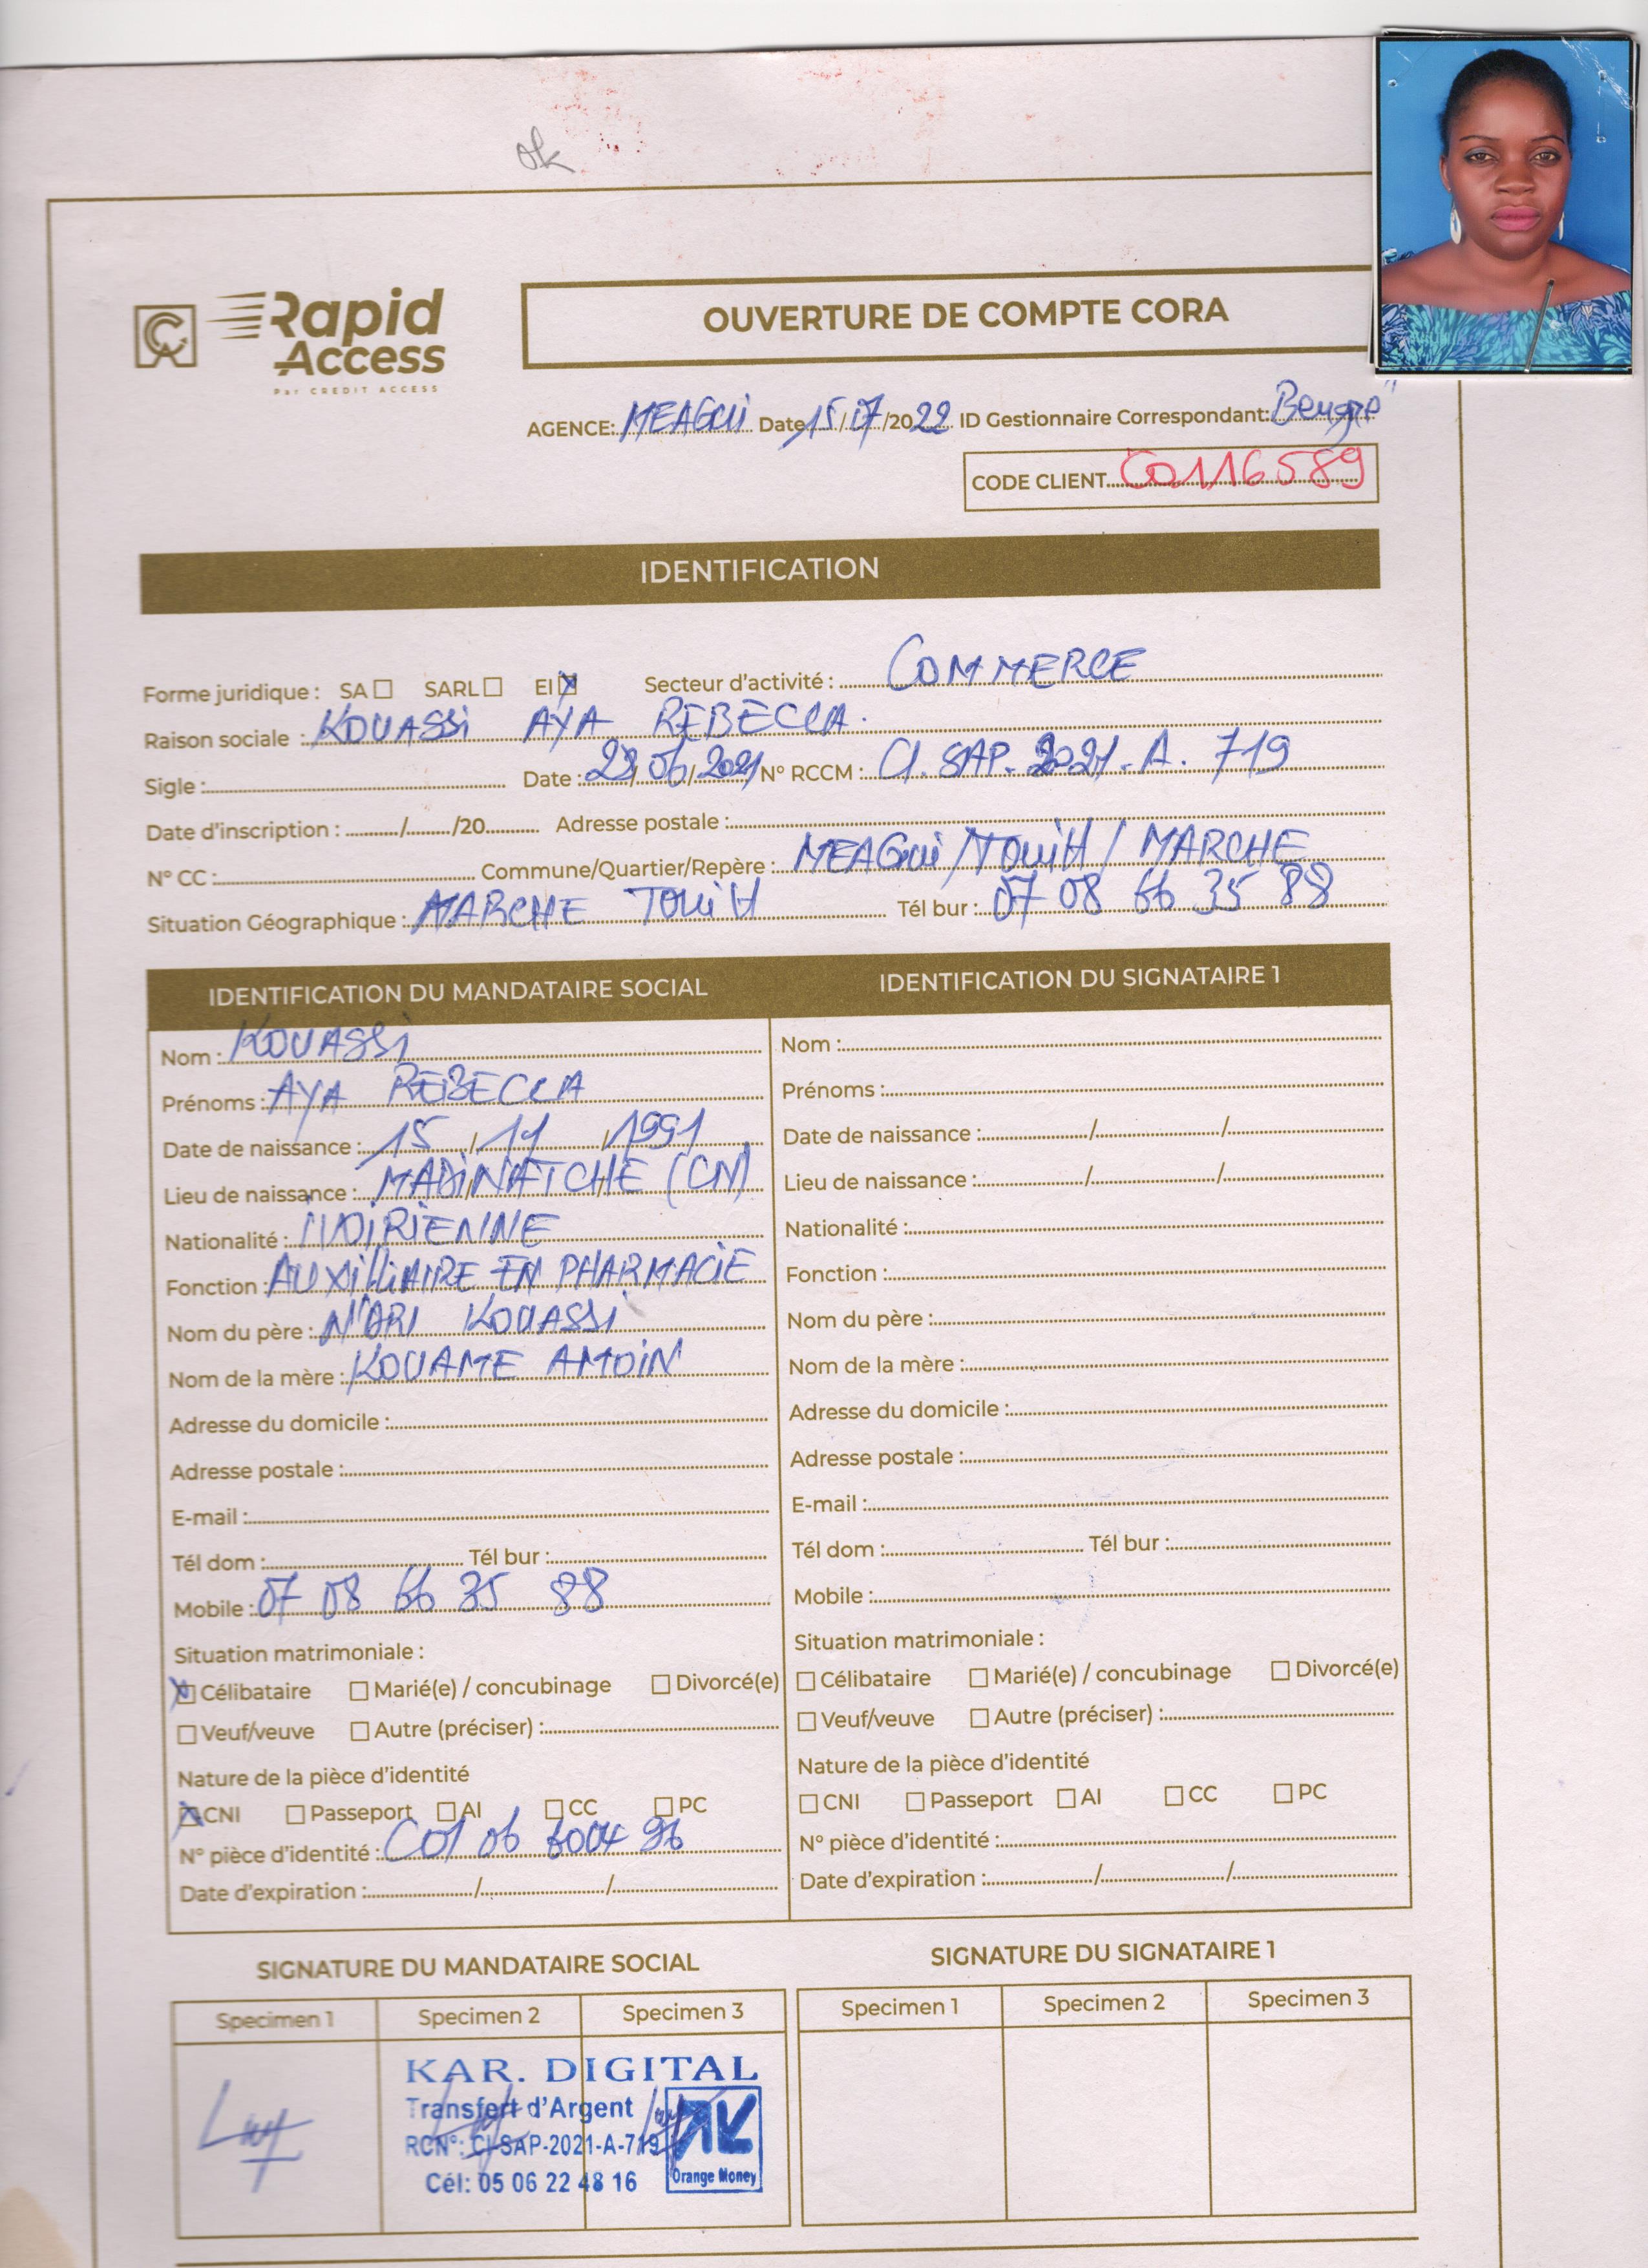 ok
Rapid
Access
Par CREDIT ACCESS
OUVERTURE DE COMPTE CORA
AGENCE: MEAGUI Date 15/07/2022 ID Gestionnaire Correspondant:
CODE CLIENT C0116589
IDENTIFICATION
Forme juridique : SA SARL EI Secteur d'activité : COMMERCE
Raison sociale : KOUASSI AYA REBECCA
Sigle : Date : 28/06/2021 N° RCCM : CI.SAP.2021.A.719
Date d'inscription : / /20 Adresse postale :
N° CC : Commune/Quartier/Repère : MEAGUI/TOUIH/MARCHE
Situation Géographique : MARCHE TOUIH Tél bur : 07 08 66 35 88
IDENTIFICATION DU MANDATAIRE SOCIAL
Nom : KOUASSI
Prénoms : AYA REBECCA
Date de naissance : 15/11/1991
Lieu de naissance : (CN)
Nationalité : IVOIRIENNE
Fonction : AUXILLIAIRE EN PHARMACIE
Nom du père : N'ORI KOUASSI
Nom de la mère : KOUAME AMOIN
Adresse du domicile :
Adresse postale :
E-mail :
Tél dom : Tél bur :
Mobile : 07 08 66 35 88
Situation matrimoniale :
Célibataire Marié(e) / concubinage Divorcé(e)
Veuf/veuve Autre (préciser) :
Nature de la pièce d'identité
CNI Passeport AI CC PC
N° pièce d'identité : C01 06 6004 96
Date d'expiration : / /
IDENTIFICATION DU SIGNATAIRE 1
Nom :
Prénoms :
Date de naissance : / /
Lieu de naissance : / /
Nationalité :
Fonction :
Nom du père :
Nom de la mère :
Adresse du domicile :
Adresse postale :
E-mail :
Tél dom : Tél bur :
Mobile :
Situation matrimoniale :
Célibataire Marié(e) / concubinage Divorcé(e)
Veuf/veuve Autre (préciser) :
Nature de la pièce d'identité
CNI Passeport AI CC PC
N° pièce d'identité :
Date d'expiration : / /
SIGNATURE DU MANDATAIRE SOCIAL
Specimen 1 Specimen 2 Specimen 3
KAR. DIGITAL
Transfert d'Argent
RCN°: CI-SAP-2021-A-719
Cél: 05 06 22 48 16
Orange Money
SIGNATURE DU SIGNATAIRE 1
Specimen 1 Specimen 2 Specimen 3